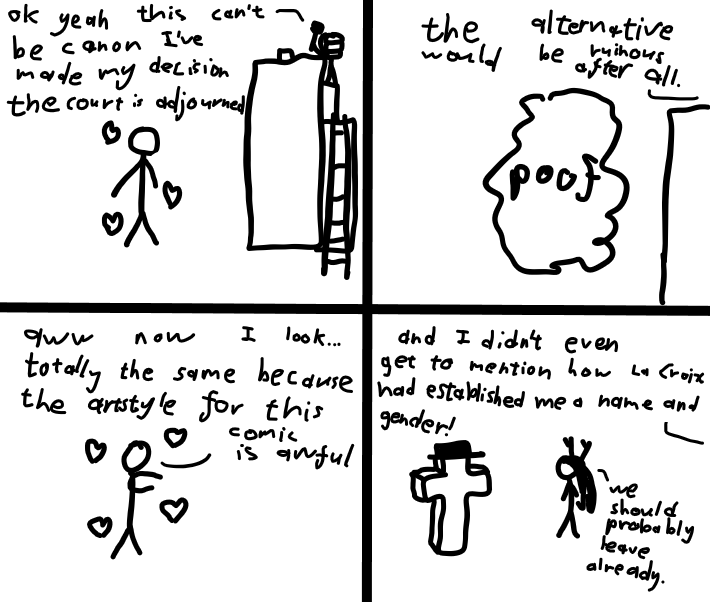 ok yeah this can't
be canon I've
made my decision
the court is adjourned
the alternative
would be ruinous
after all.
poof
aww now I look...
totally the same because
the artstyle for this
comic
is awful
and I didn't even
get to mention how La Croix
had established me a name and
gender!
we
should
probably
leave
already.